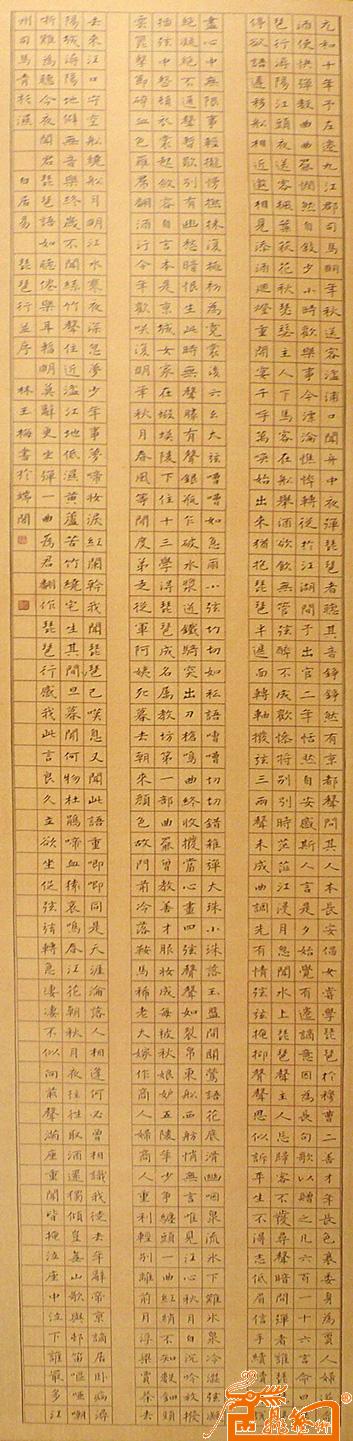 元和十年予左遷九江郡司馬明年秋送客湓浦口聞舟中夜彈琵琶者聽其音錚錚然有京都聲問其人本長安倡女嘗學琵琶於穆曹二善才年長色衰委身為賈人婦遂命
酒使快彈數曲曲罷憫然自敘少小時歡樂事今漂淪憔悴轉徙於江湖間予出官二年恬然自安感斯人言是夕始覺有遷謫意因為長句歌以贈之凡六百一十六言命曰琵
琶行潯陽江頭夜送客楓葉荻花秋瑟瑟主人下馬客在船舉酒欲飲無管絃醉不成歡慘將別別時茫茫江浸月忽聞水上琵琶聲主人忘歸客不發尋聲暗問彈者誰琵琶聲
停欲語遲移船相近邀相見添酒迴燈重開宴千呼萬喚始出來猶抱琵琶半遮面轉軸撥弦三兩聲未成曲調先有情弦弦掩抑聲聲思似訴平生不得志低眉信手續續彈說
盡心中無限事輕攏慢撚抹復挑初為霓裳後六么大弦嘈嘈如急雨小弦切切如私語嘈嘈切切錯雜彈大珠小珠落玉盤間關鶯語花底滑幽咽泉流水下難水泉冷澀弦凝
絕凝絕不通聲暫歇別有幽愁暗恨生此時無聲勝有聲銀瓶乍破水漿迸鐵騎突出刀槍鳴曲終收撥當心畫四弦一聲如裂帛東船西舫悄無言唯見江心秋月白沉吟放撥
插弦中整頓衣裳起斂容自言本是京城女家在蝦蟆陵下住十三學得琵琶成名屬教坊第一部曲罷曾教善才服妝成每被秋娘妒五陵年少爭纏頭一曲紅綃不知數鈿頭
雲篦擊節碎血色羅裙翻酒污今年歡笑復明年秋月春風等閒度弟走從軍阿姨死暮去朝來顏色故門前冷落鞍馬稀老大嫁作商人婦商人重利輕別離前月浮梁買茶去
去來江口守空船繞船月明江水寒夜深忽夢少年事夢啼妝淚紅闌幹我聞琵琶已嘆息又聞此語重唧唧同是天涯淪落人相逢何必曾相識我從去年辭帝京謫居臥病潯
陽城潯陽地僻無音樂終歲不聞絲竹聲住近湓江地低濕黃蘆苦竹繞宅生其間旦暮聞何物杜鵑啼血猿哀鳴春江花朝秋月夜往往取酒還獨傾豈無山歌與村笛嘔啞嘲
哳難為聽今夜聞君琵琶語如聽仙樂耳暫明莫辭更坐彈一曲為君翻作琵琶行感我此言良久立卻坐促弦弦轉急淒淒不似向前聲滿座重聞皆掩泣座中泣下誰最多江
州司馬青衫濕 白居易 琵琶行並序 林玉梅書於端閣